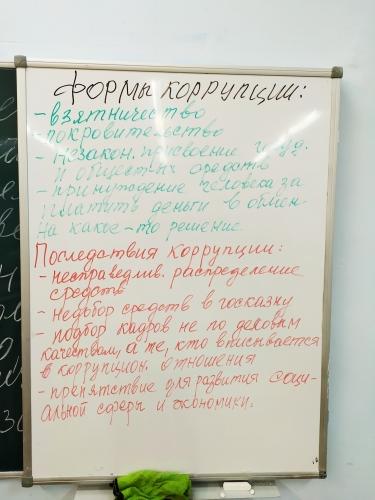 ФОРМЫ КОРРУПЦИИ:
- взятничество
- покровительство
- незакон. присвоение гос-уд.
и обществ средств
- принуждение человека за
платить деньги в обмен
на какое-то решение.
Последствия коррупции:
- несправедлив. распределение
средств
- недобор средств в госказну
- подбор кадров не по деловым
качествам, а те, кто вписывается
в коррупцион. отношения
- препятствие для развития соци-
альной сферы и экономики.